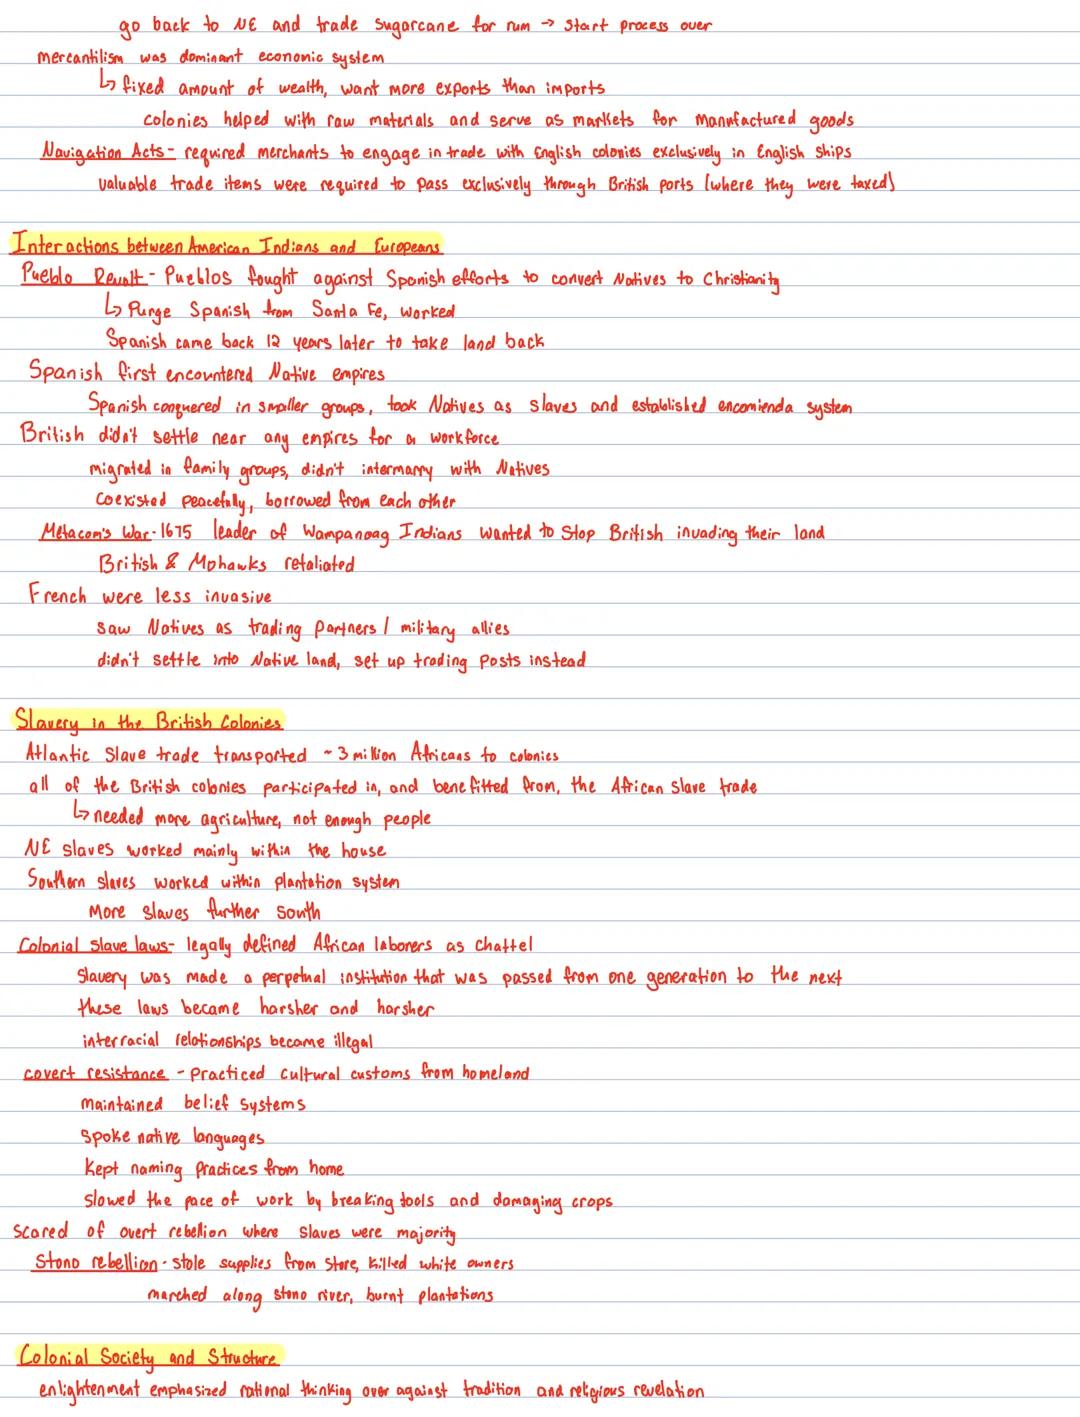 go back to NE and trade sugarcane for rum → start process over
mercantilism was dominant economic system
↳ fixed amount of wealth, want more exports than imports
colonies helped with raw materials and serve as markets for manufactured goods
Navigation Acts- required merchants to engage in trade with English colonies exclusively in English ships
valuable trade items were required to pass exclusively through British ports (where they were taxed)
Interactions between American Indians and Europeans
Pueblo Revolt- Pueblos fought against Spanish efforts to convert Natives to Christianity
↳ Purge Spanish from Santa Fe, worked
Spanish came back 12 years later to take land back
Spanish first encountered Native empires
Spanish conquered in smaller groups, took Natives as slaves and established encomienda system
British didn't settle near any empires for a workforce
migrated in family groups, didn't intermarry with Natives
coexisted peacefully, borrowed from each other
Metacom's War-1675 leader of Wampanoag Indians wanted to stop British invading their land
British & Mohawks retaliated
French were less invasive
saw Natives as trading partners / military allies
didn't settle into Native land, set up trading posts instead
Slavery in the British Colonies
Atlantic slave trade transported ~3 million Africans to colonies
all of the British colonies participated in, and benefitted from, the African slave trade
↳ needed more agriculture, not enough people
NE slaves worked mainly within the house
Southern slaves worked within plantation system
More slaves further south
Colonial slave laws- legally defined African laborers as chattel
slavery was made a perpetual institution that was passed from one generation to the next
these laws became harsher and harsher
interracial relationships became illegal
covert resistance - practiced cultural customs from homeland
maintained belief systems
spoke native languages
kept naming practices from home
slowed the pace of work by breaking tools and damaging crops
scared of overt rebellion where slaves were majority
Stono rebellion - stole supplies from store, killed white owners
marched along stono river, burnt plantations
Colonial Society and Structure
enlightenment emphasized rational thinking over against tradition and religious revelation